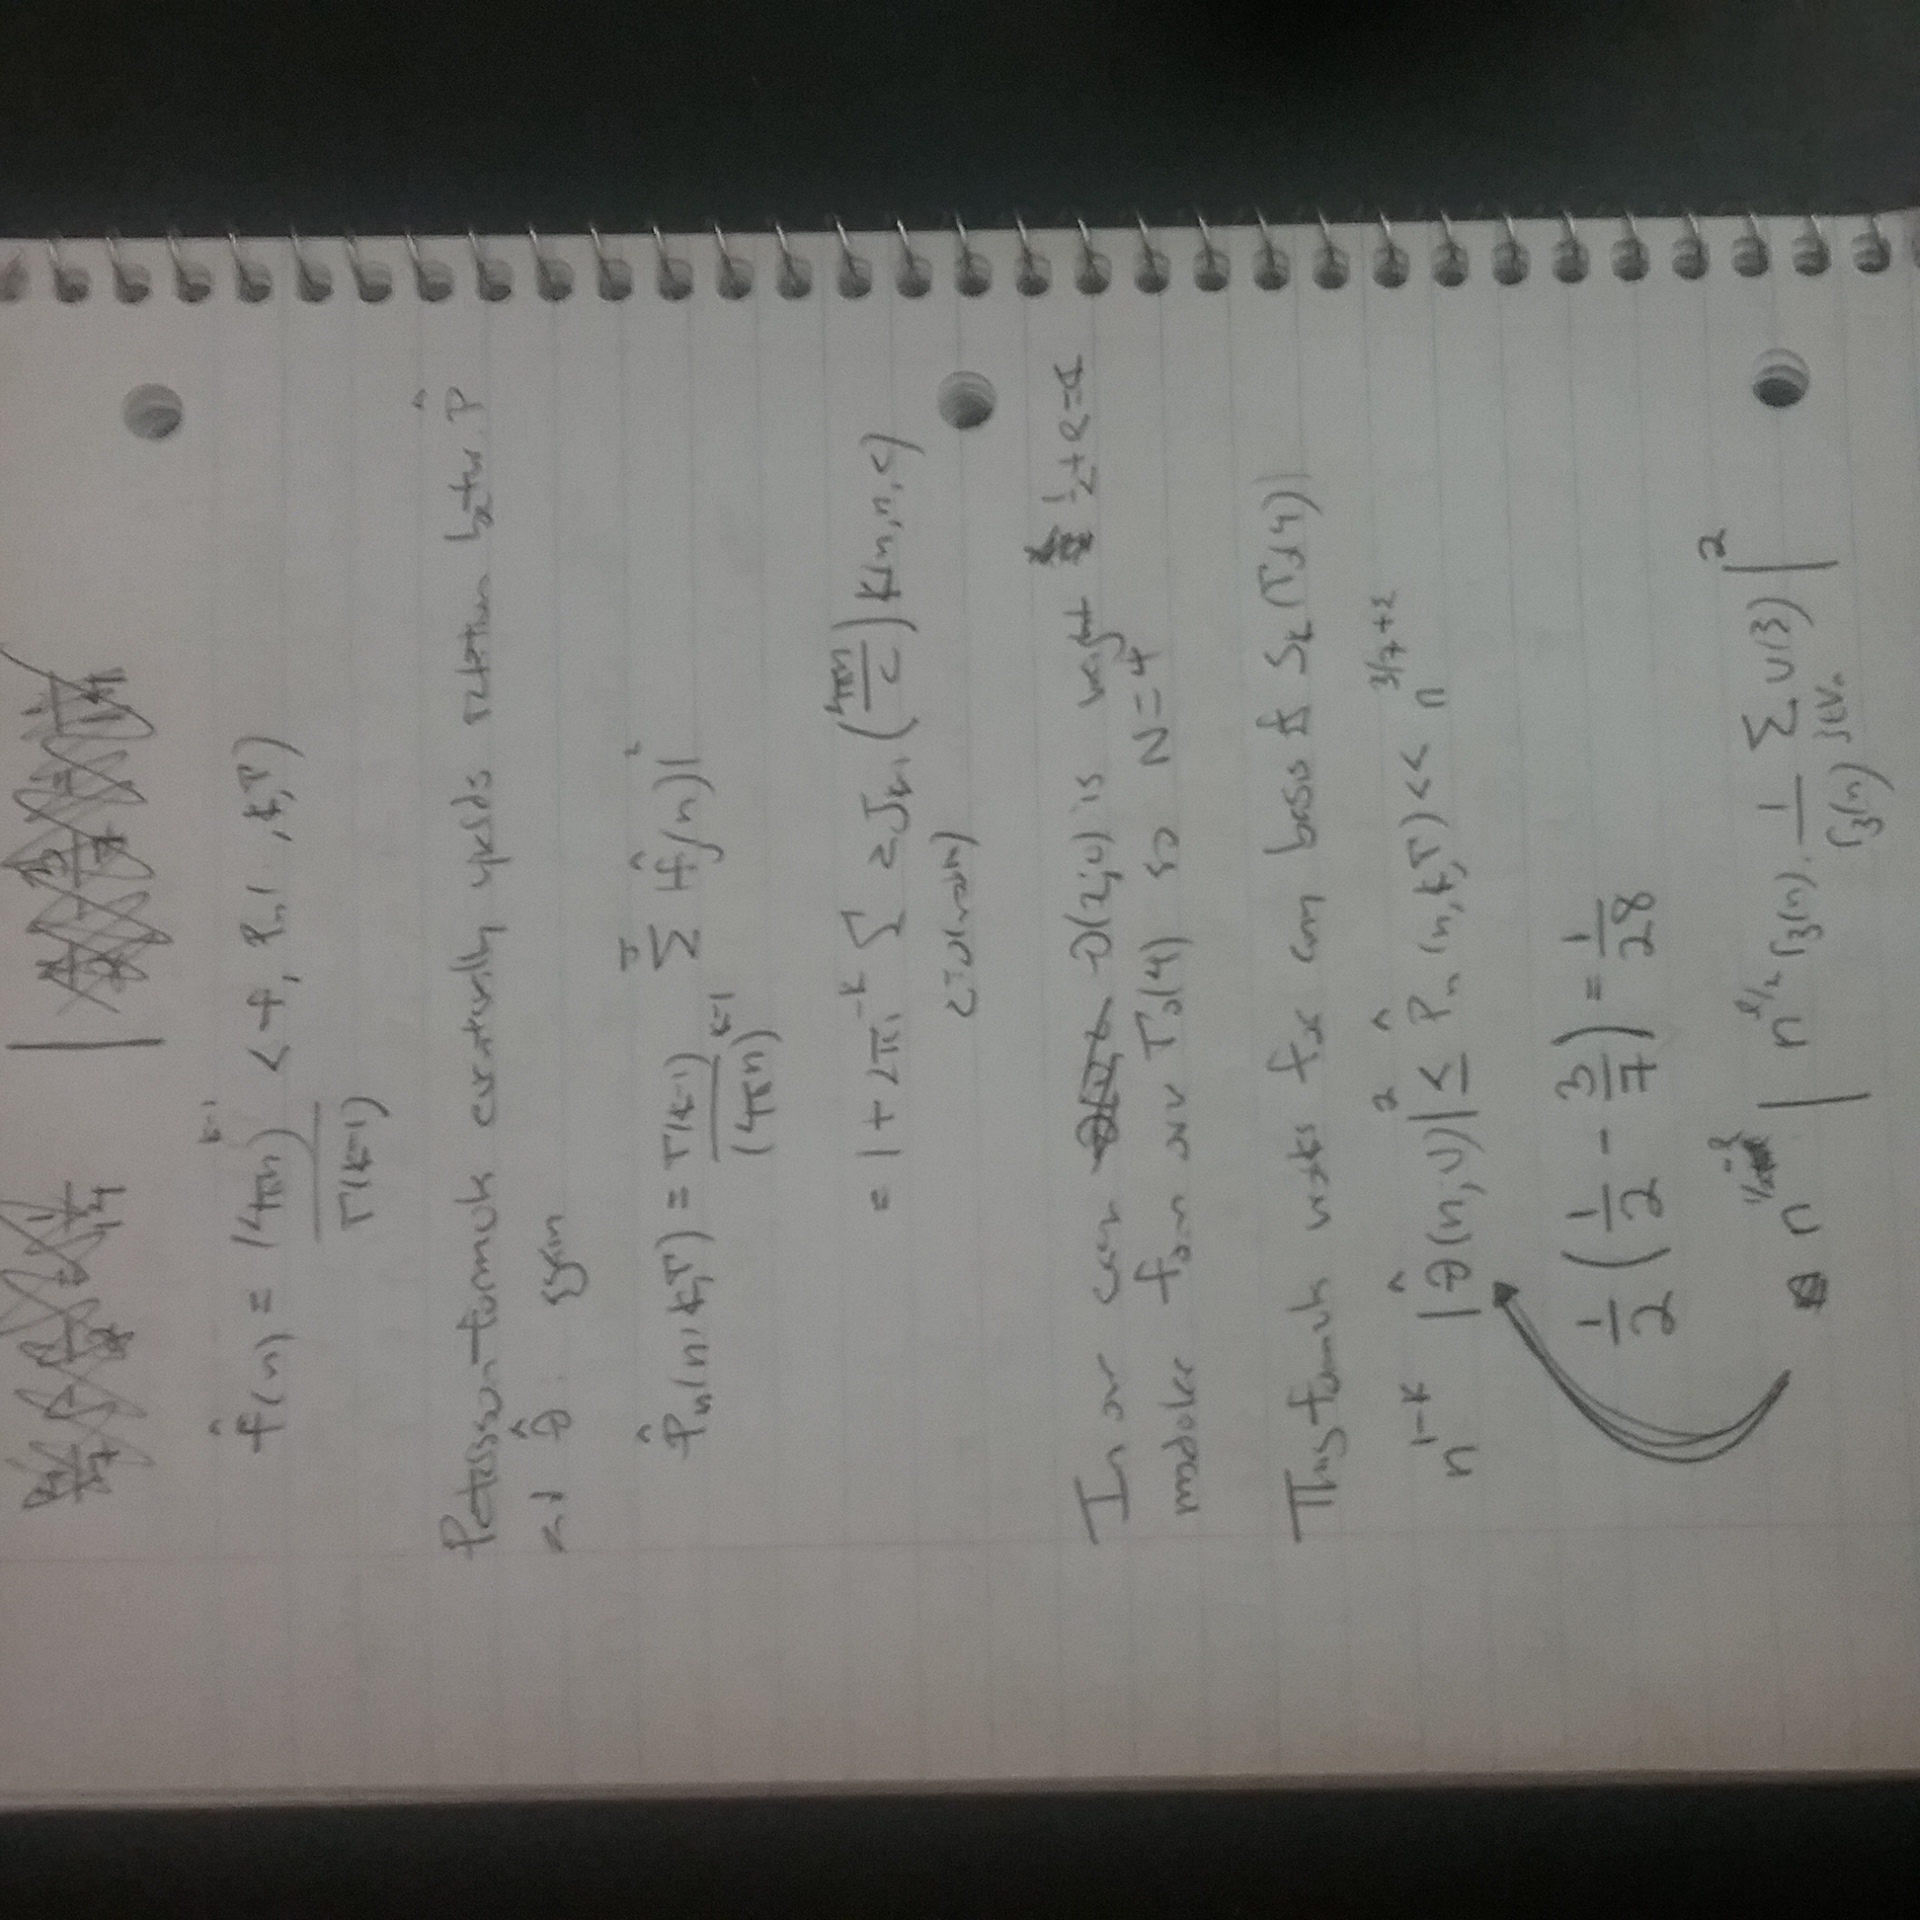 f̂(n) = (4πn)^{k-1} / Γ(k-1) <f, P_n(·, k, Γ)>
Petersson formula essentially yields relation betw. P̂
and θ̂.
P̂_n(n, k, Γ) = Γ(k-1) / (4πn)^{k-1} Σ |f̂_j(n)|^2
= 1 + 2πi^{-k} Σ_{c≡0(mod N)} 2J_{k-1}(4πn / c) K(n, n, c)
In our case θ(z; u) is weight
modular form over Γ_0(4) so N=4
This formula works for an basis of S_k(Γ_0(4))
n^{1-k} |θ̂(n, u)|^2 ≤ P̂_n(n, k, Γ) << n^{3/7+ε}
1/2 (1/2 - 3/7) = 1/28
| n^{ℓ/2} r_3(n) · 1/r_3(n) Σ_{ξ∈V_n} u(ξ) |^2